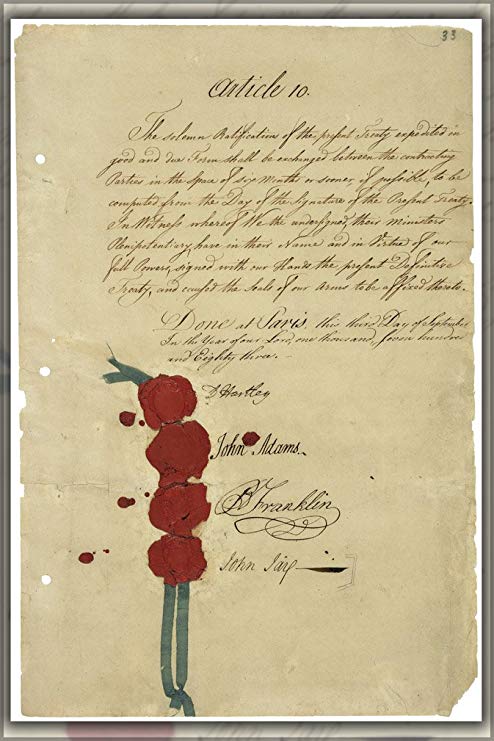 33
Article 10.
The solemn Ratifications of the present Treaty expedited in
good and due Form shall be exchanged between the contracting
Parties in the Space of six Months or sooner if possible, to be
computed from the Day of the Signature of the Present Treaty.
In Witness whereof We the undersigned, their Ministers
Plenipotentiary, have in their Name and in Virtue of our
full Powers, signed with our Hands the present Definitive
Treaty, and caused the Seals of our Arms to be affixed thereto.
Done at Paris, this third Day of September
In the Year of our Lord, one thousand, seven hundred
and Eighty three. –
D Hartley
John Adams.
B Franklin
John Jay